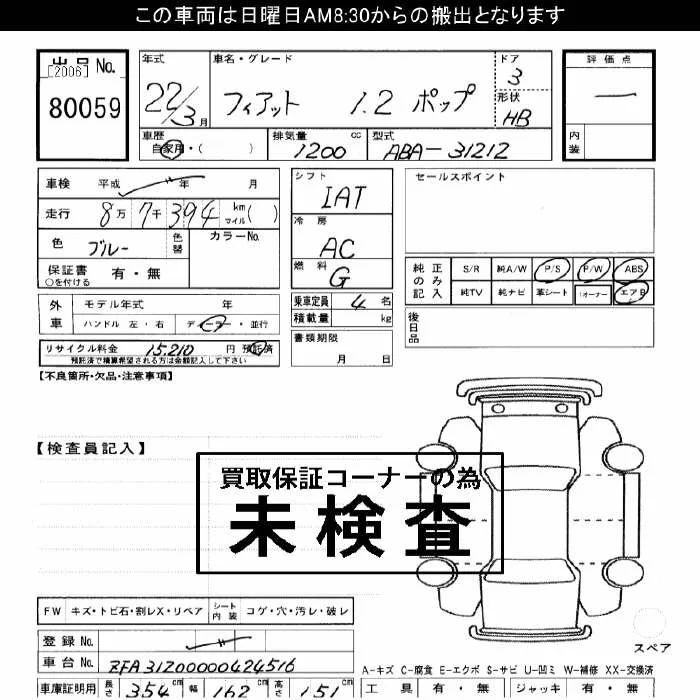 この車両は日曜日AM8:30からの搬出となります
出品 No.
[2006]
80059
年式 22/3月
車名・グレード フィアット 1.2 ポップ
ドア 3
形状 HB
評価点 ー
内装
車歴 自家用・( )
排気量 1200 cc
型式 ABA-31212
車検 平成 年 月
走行 8万7千394 km マイル( )
色 ブルー 色替
カラーNo.
保証書 有・無
○を付ける
シフト IAT
冷房 AC
燃料 G
乗車定員 4 名
積載量 kg
書類期限 月 日
セールスポイント
純正のみ記入 S/R 純A/W P/S P/W ABS
純TV 純ナビ 革シート 1オーナー エアB
後日品
外車 モデル年式 年
ハンドル 左・右 ディーラー・並行
リサイクル料金 15,210 円 預託済
預託済で積算希望される方は金額記入して下さい
【不良箇所・欠品・注意事項】
【検査員記入】
買取保証コーナーの為
未検査
FW キズ・トビ石・割レX・リペア シート内装 コゲ・穴・汚レ・破レ
登録 No.
車台 No. ZFA31200000424516
スペア
A-キズ C-腐食 E-エクボ S-サビ U-凹ミ W-補修 XX-交換済
車庫証明用 長さ 354 cm 幅 162 cm 高さ 151 cm
工具 有・無 ジャッキ 有・無